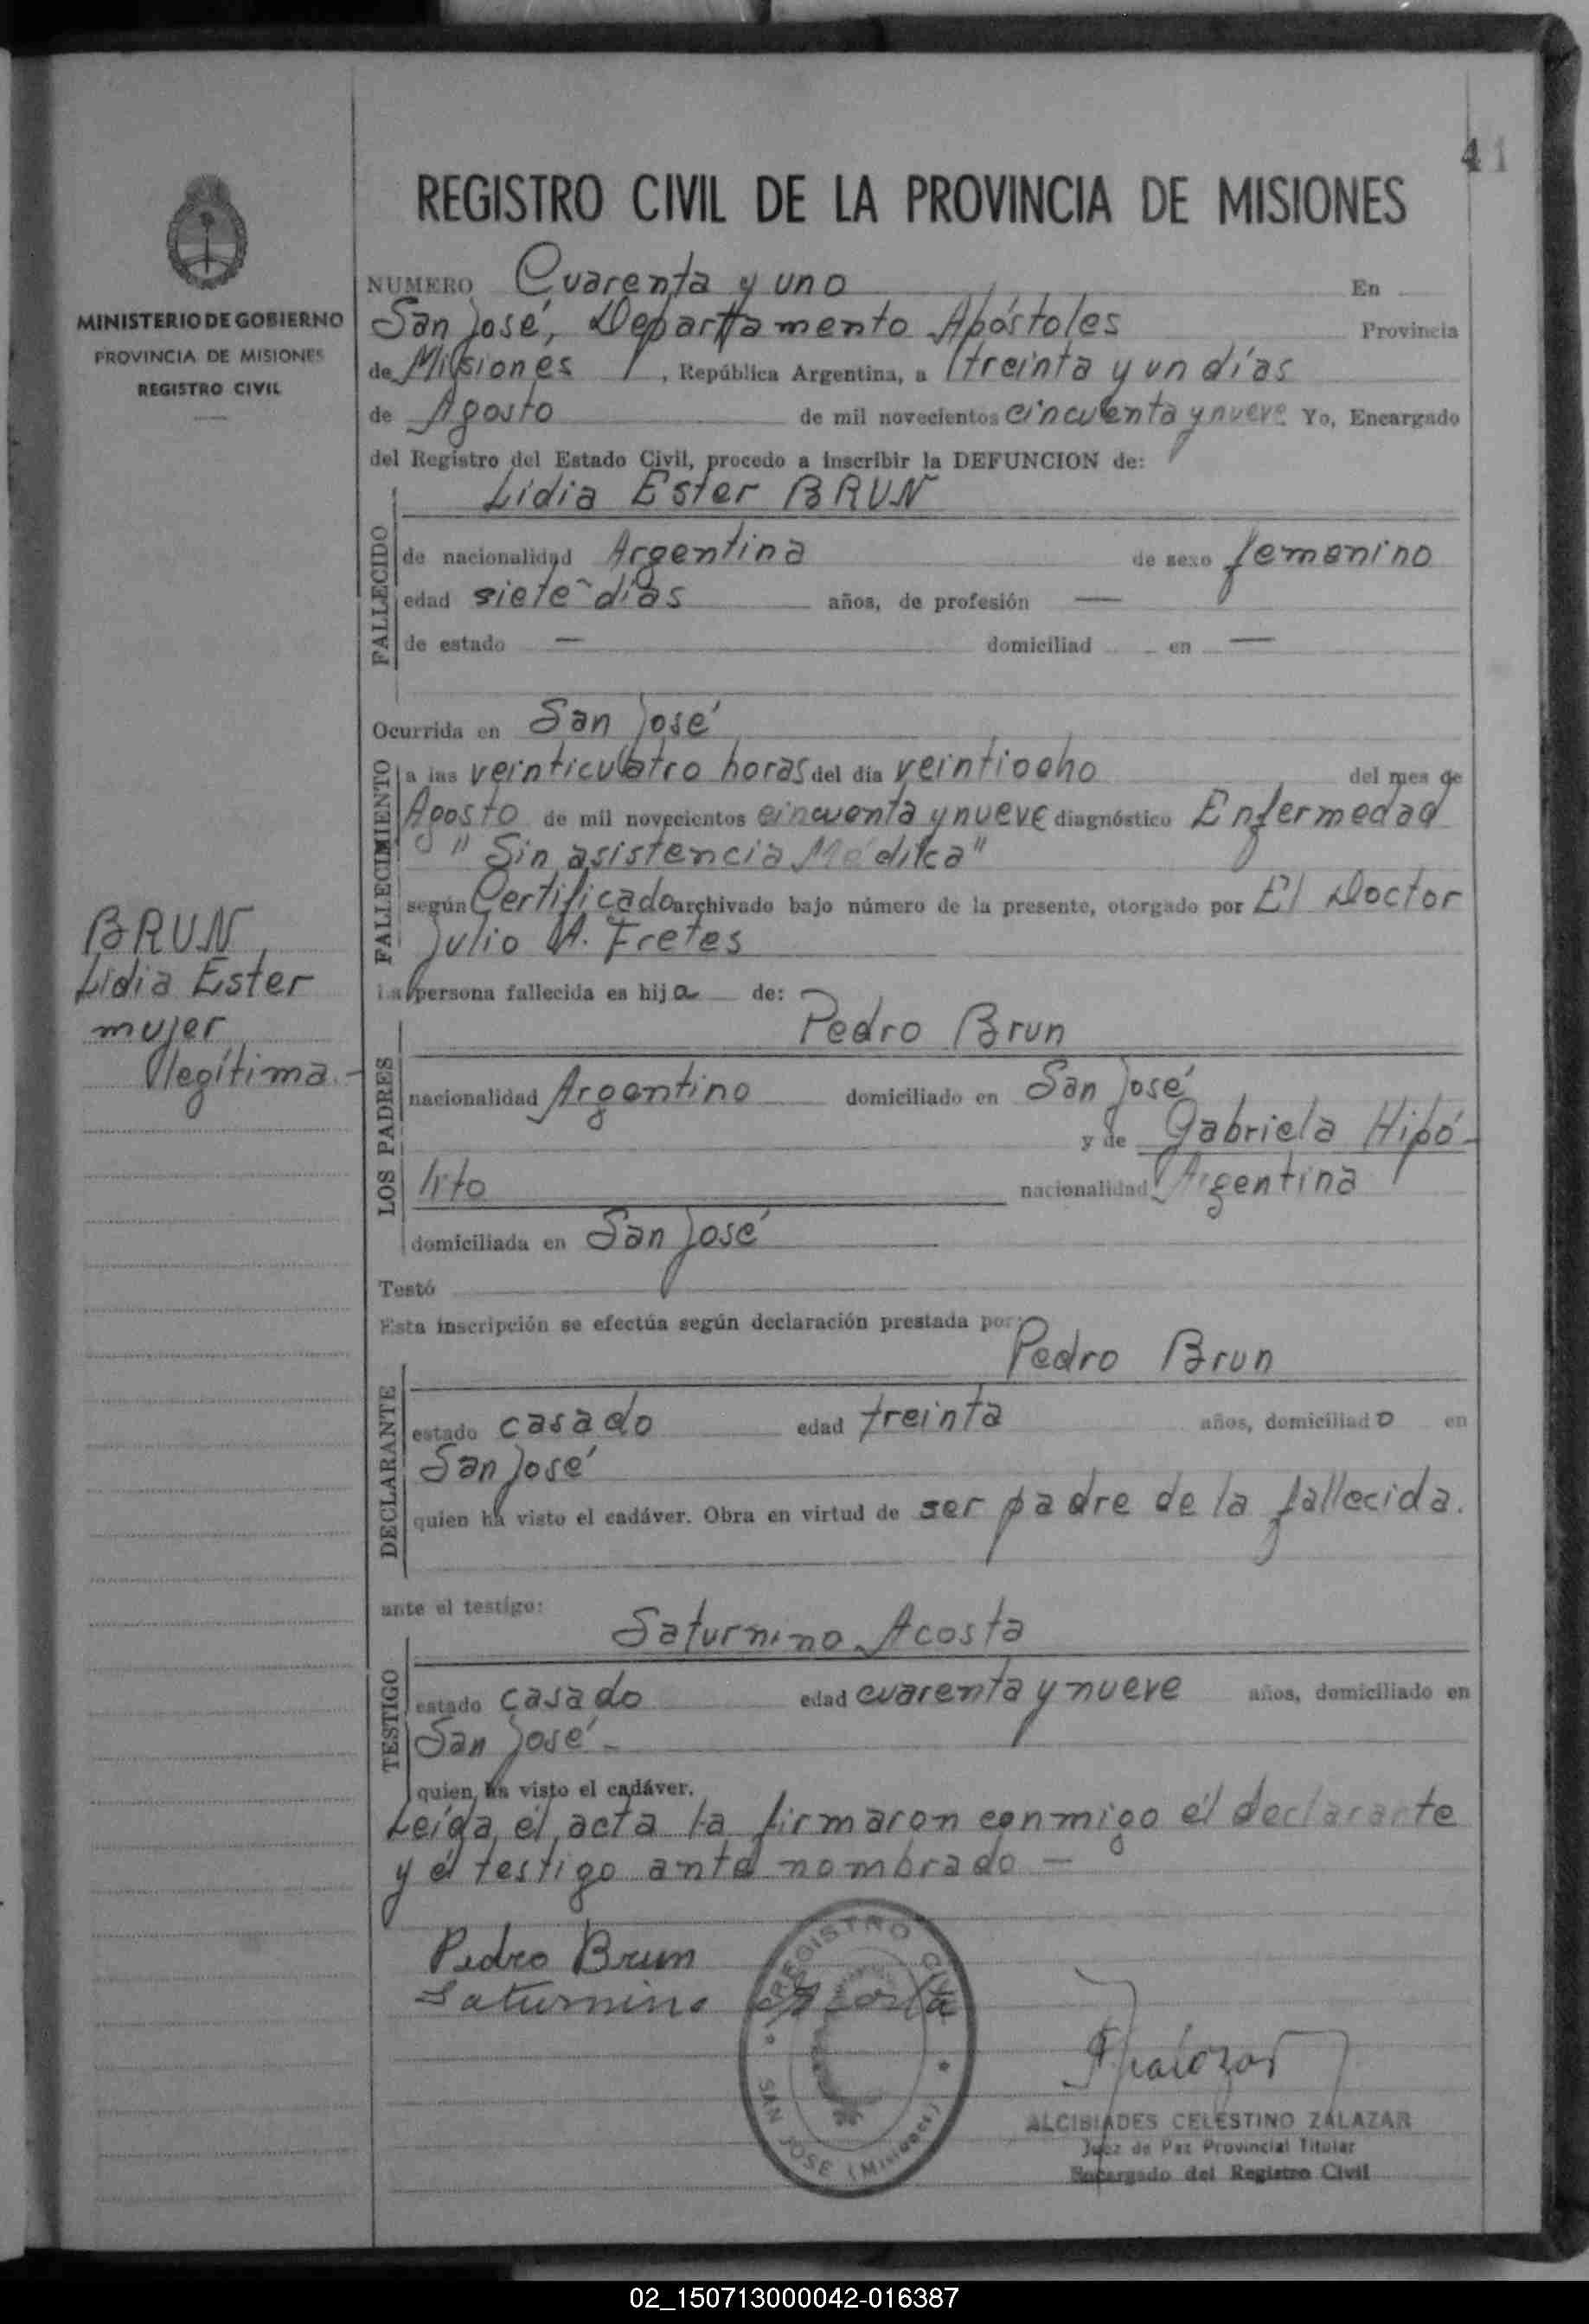 41
REGISTRO CIVIL DE LA PROVINCIA DE MISIONES
MINISTERIO DE GOBIERNO
PROVINCIA DE MISIONES
REGISTRO CIVIL
NUMERO Cuarenta y uno En
San José, Departamento Apóstoles Provincia
de Misiones, República Argentina, a treinta y un días
de Agosto de mil novecientos cincuenta y nueve Yo, Encargado
del Registro del Estado Civil, procedo a inscribir la DEFUNCION de:
Lidia Ester BRUN
FALLECIDO
de nacionalidad Argentina de sexo femenino
edad siete días años, de profesión —
de estado — domiciliad en —
Ocurrida en San José
FALLECIMIENTO
a las veinticuatro horas del día veintiocho del mes de
Agosto de mil novecientos cincuenta y nueve diagnóstico Enfermedad
"Sin asistencia Médica"
según Certificado archivado bajo número de la presente, otorgado por El Doctor
Julio A. Fretes
La persona fallecida es hija de:
BRUN
Lidia Ester
mujer
legítima.-
LOS PADRES
Pedro Brun
nacionalidad Argentino domiciliado en San José
y de Gabriela Hipó-
lito nacionalidad Argentina
domiciliada en San José
Testó
Esta inscripción se efectúa según declaración prestada por:
DECLARANTE
Pedro Brun
estado casado edad treinta años, domiciliado en
San José
quien ha visto el cadáver. Obra en virtud de ser padre de la fallecida.
ante el testigo:
TESTIGO
Saturnino Acosta
estado casado edad cuarenta y nueve años, domiciliado en
San José -
quien ha visto el cadáver.
Leída el acta la firmaron conmigo el declarante
y el testigo ante nombrado —
Pedro Brun
Saturnino Acosta
REGISTRO CIVIL
SAN JOSE (Misiones)
ALCIBIADES CELESTINO ZALAZAR
Juez de Paz Provincial Titular
Encargado del Registro Civil
02_150713000042-016387